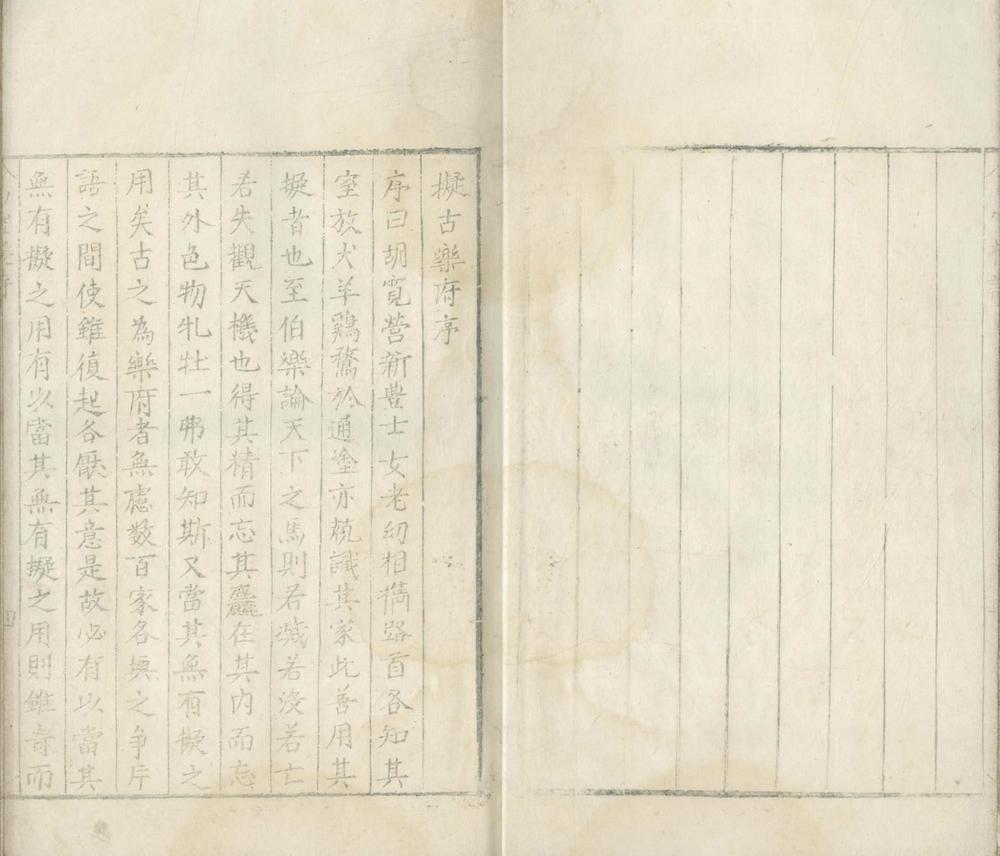 擬古樂府序
序曰胡寛營新豊士女老幼相擕路首各知其
室放犬羊鷄鶩於通塗亦競識其家此善用其
擬者也至伯樂論天下之馬則若滅若没若亡
若失觀天機也得其精而忘其麤在其内而忘
其外色物牝牡一弗敢知斯又當其無有擬之
用矣古之為樂府者無慮數百家各與之争片
語之間使雖復起各厭其意是故必有以當其
無有擬之用有以當其無有擬之用則雖奇而